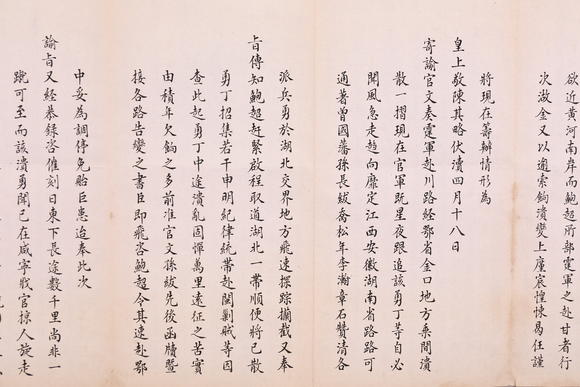 欲近黃河南岸而鮑超所部霆軍之赴甘者行
次湖金又以逾索餉潰變上廑宸惶悚曷任謹
將現在籌辦情形為
皇上敬陳其略伏讀四月十八日
寄諭官文奏霆軍赴川路經鄂省金口地方桀閧潰
散一摺現在官軍既星夜跟追該勇丁等自必
聞風急走趨向靡定江西安徽湖南省路路可
通著曾國藩孫長紱喬松年李瀚章石贊清各
派兵勇於湖北交界地方飛速探蹤攔截又奉
旨傳知鮑超趕緊啟程取道湖北一帶順便將已散
勇丁招集若干申明紀律統帶赴閩剿賊等因
查此起勇丁中途潰亂固憚萬里遠征之苦實
由積年欠餉之多前准官文孫紱先後函牘暨
接各路告變之書臣即飛咨鮑超令其速赴鄂
中妥為調停免貽巨患迨奉此次
諭旨又經恭錄咨催刻日東下長途數千里尚非一
蹴可至而該潰勇聞已在咸寧戕官掠人旋走